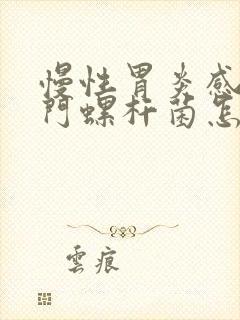 慢性胃炎感
門螺杆菌怎
雲痕